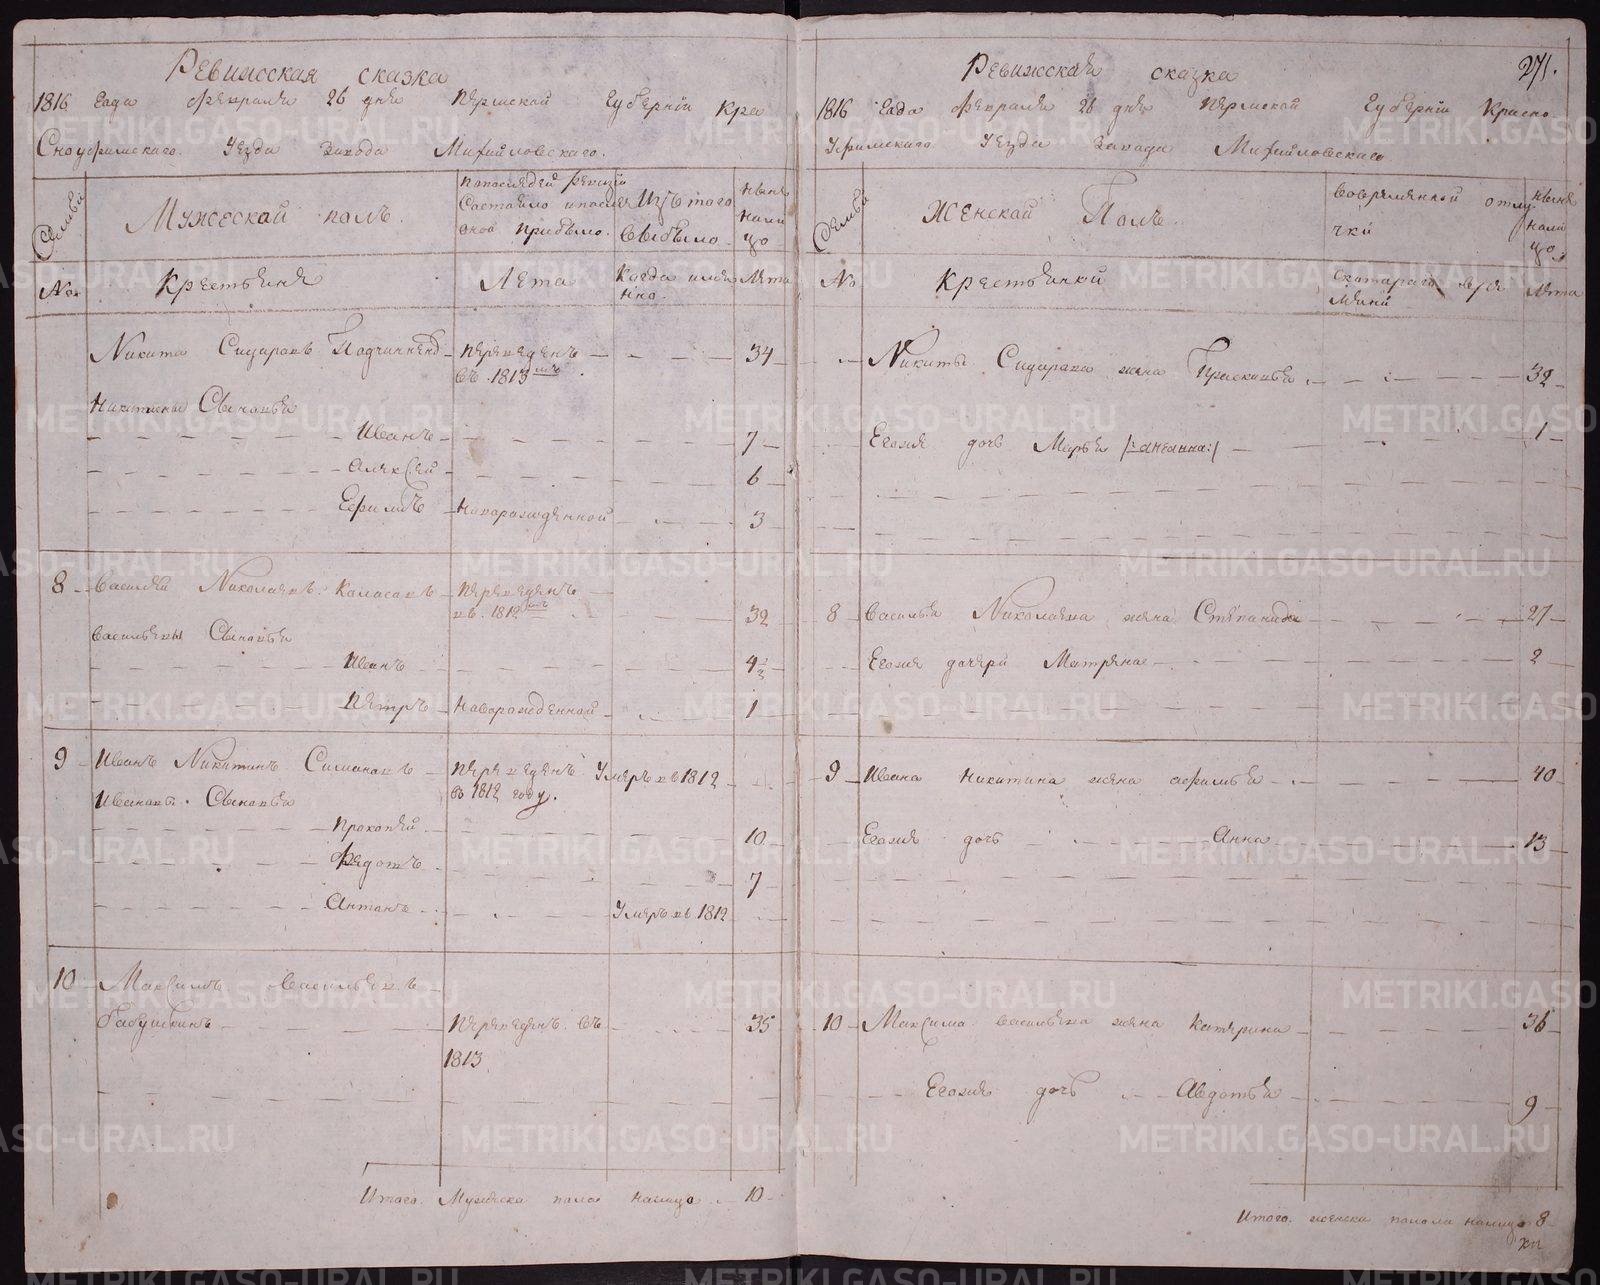 Ревижсская сказка
1816 Года февраля 26 дня Пермской Губернiи Кра
сноуфимскаго Уезда Завода Михайловскаго.
Семьи
Мужескай полъ.
Изъ того
выбыло
ныне
нали
цо
№
Крестьяня
Лета
Когда имян
но.
Лета
Никита Сидаровъ
Переведенъ
въ 1813мъ
34
Никитины Сыновья
Иванъ
7
Алексей
6
Ефимъ
Новорожденной
3
8 Василей Николаевъ Каласовъ
Переведенъ
въ 1812мъ
32
Васильевы Сыновья
Иванъ
4
Петръ
Новорожденной
1
9 Иванъ Никитинъ Симановъ
Переведенъ
въ 1812 году.
Умеръ въ 1812
Ивановы Сыновья
Прокопей
10
Федотъ
7
Антонъ
Умеръ въ 1812
10 Максимъ Васильевъ
Бабушкинъ
Переведенъ въ
1813
35
Итого Мужеска пола налицо 10
Ревижская сказка
271.
1816 Года февраля 26 дня Пермской Губернiи Красно
уфимскаго Уезда Завода Михайловскаго
Семьи
Женскай Полъ.
Вовременной отлу
чки
ныне
нали
цо
№
Крестьянки
Скотараго вре
мяни
Лета
Никиты Сидарова жена Прасковья
32
Егожя дочь Марья
1
8 Василья Николаева жена Степанида
27
Егожя дочери Матрена
2
9 Ивана Никитина жена Афимья
40
Егожя дочь Анна
13
10 Максима Васильева жена Катерина
36
Егожя дочь Авдотья
9
Итого женска пола налицо 8
METRIKI.GASO-URAL.RU